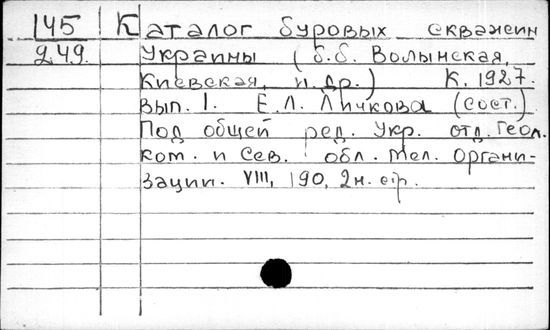 145 Каталог буровых скважин
2.49. Украины (б.б. Волынская,
Киевская, и др.) К. 1927.
вып. 1. Е.Л. Личкова (сост.)
Под общей ред. Укр. отд. Геол.
ком. и Сев. обл. мел. органи-
зации. VIII, 190, 2н. стр.